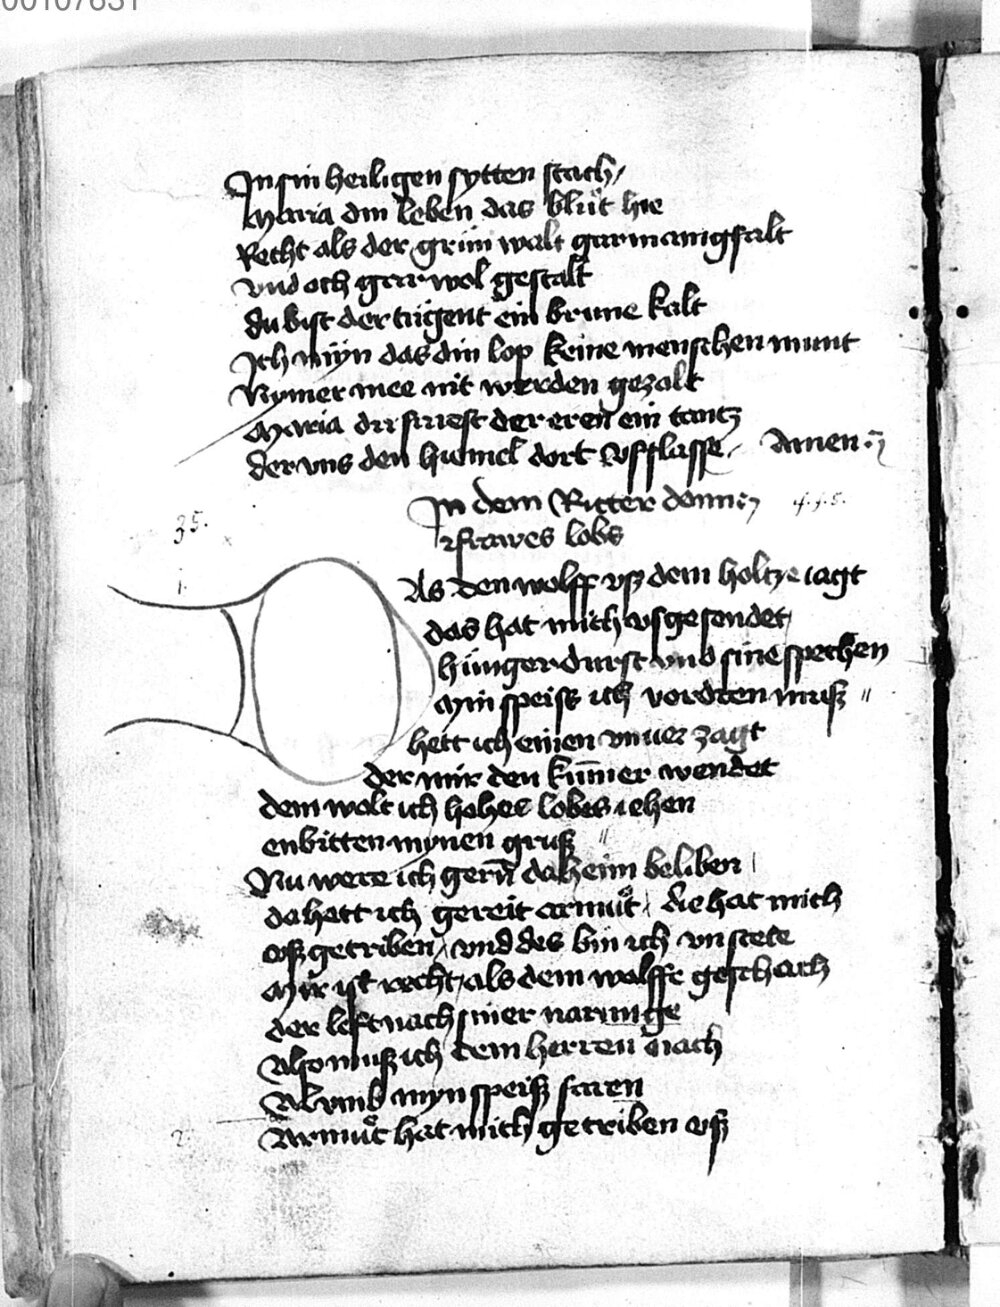 00107831
In sin heiligen sytten stach /
Maria din leben das blůt hie
Recht als der grim walt gar manigfalt
vnd och gar wol gestalt
du bist der tugent ein brune kalt
Ich myn das din lop keine menschen munt
Nymer mee nit werden gezalt
Maria du fuuest der eren ein tantz
der vns den himel dort vff slusse / Amen
In dem Ritter donn
frawes lobs
35.
1.
As den wolff vß dem holtze iagt
das hat mich vsgesendet
hunger durst vnd sine spechen
Myn speise ich vordren muß "
hett ich einen vnuer zagt
der mir den kum̄er wendet
dem wolt ich hohes lobes iehen
enbitten mynen gruß "
Nu were ich gern̄ daheim beliben /
da hett ich gereit armůt / die hat mich
vß getriben / vnd des bin ich vnstete
Myr ist recht / als dem wolffe geschach
der left nach siner narunge
Also muß ich dem herren nach
Al vmb myn speiß faren
2.
Armůt hat mich getriben vß